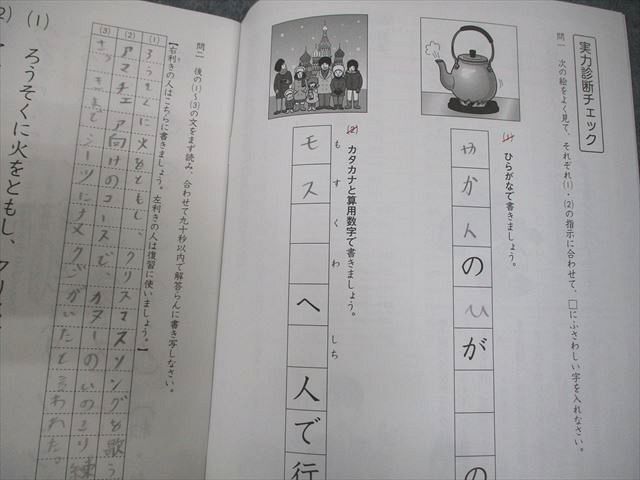 実力診断チェック
問一 次の絵をよく見て、それぞれ(1)・(2)の指示に合わせて、□にふさわしい字を入れなさい。
(1) ひらがなで書きましょう。
やかんのひが
の
(2) カタカナと算用数字で書きましょう。
もすくわ
しち
モス
へ
人で行
問一 後の(1)~(3)の文をまず読み、合わせて九十秒以内で解答らんに書き写しなさい。
【右利きの人はこちらに書きましょう。左利きの人は復習に使いましょう。】
(1) ろうそくに火をともし、クリスマスソングを歌う
(2) アマチュア向けのコースで、カヌーの
(3) シーツに
といわれた。
(1) ろうそくに火をともし、クリ
(2)